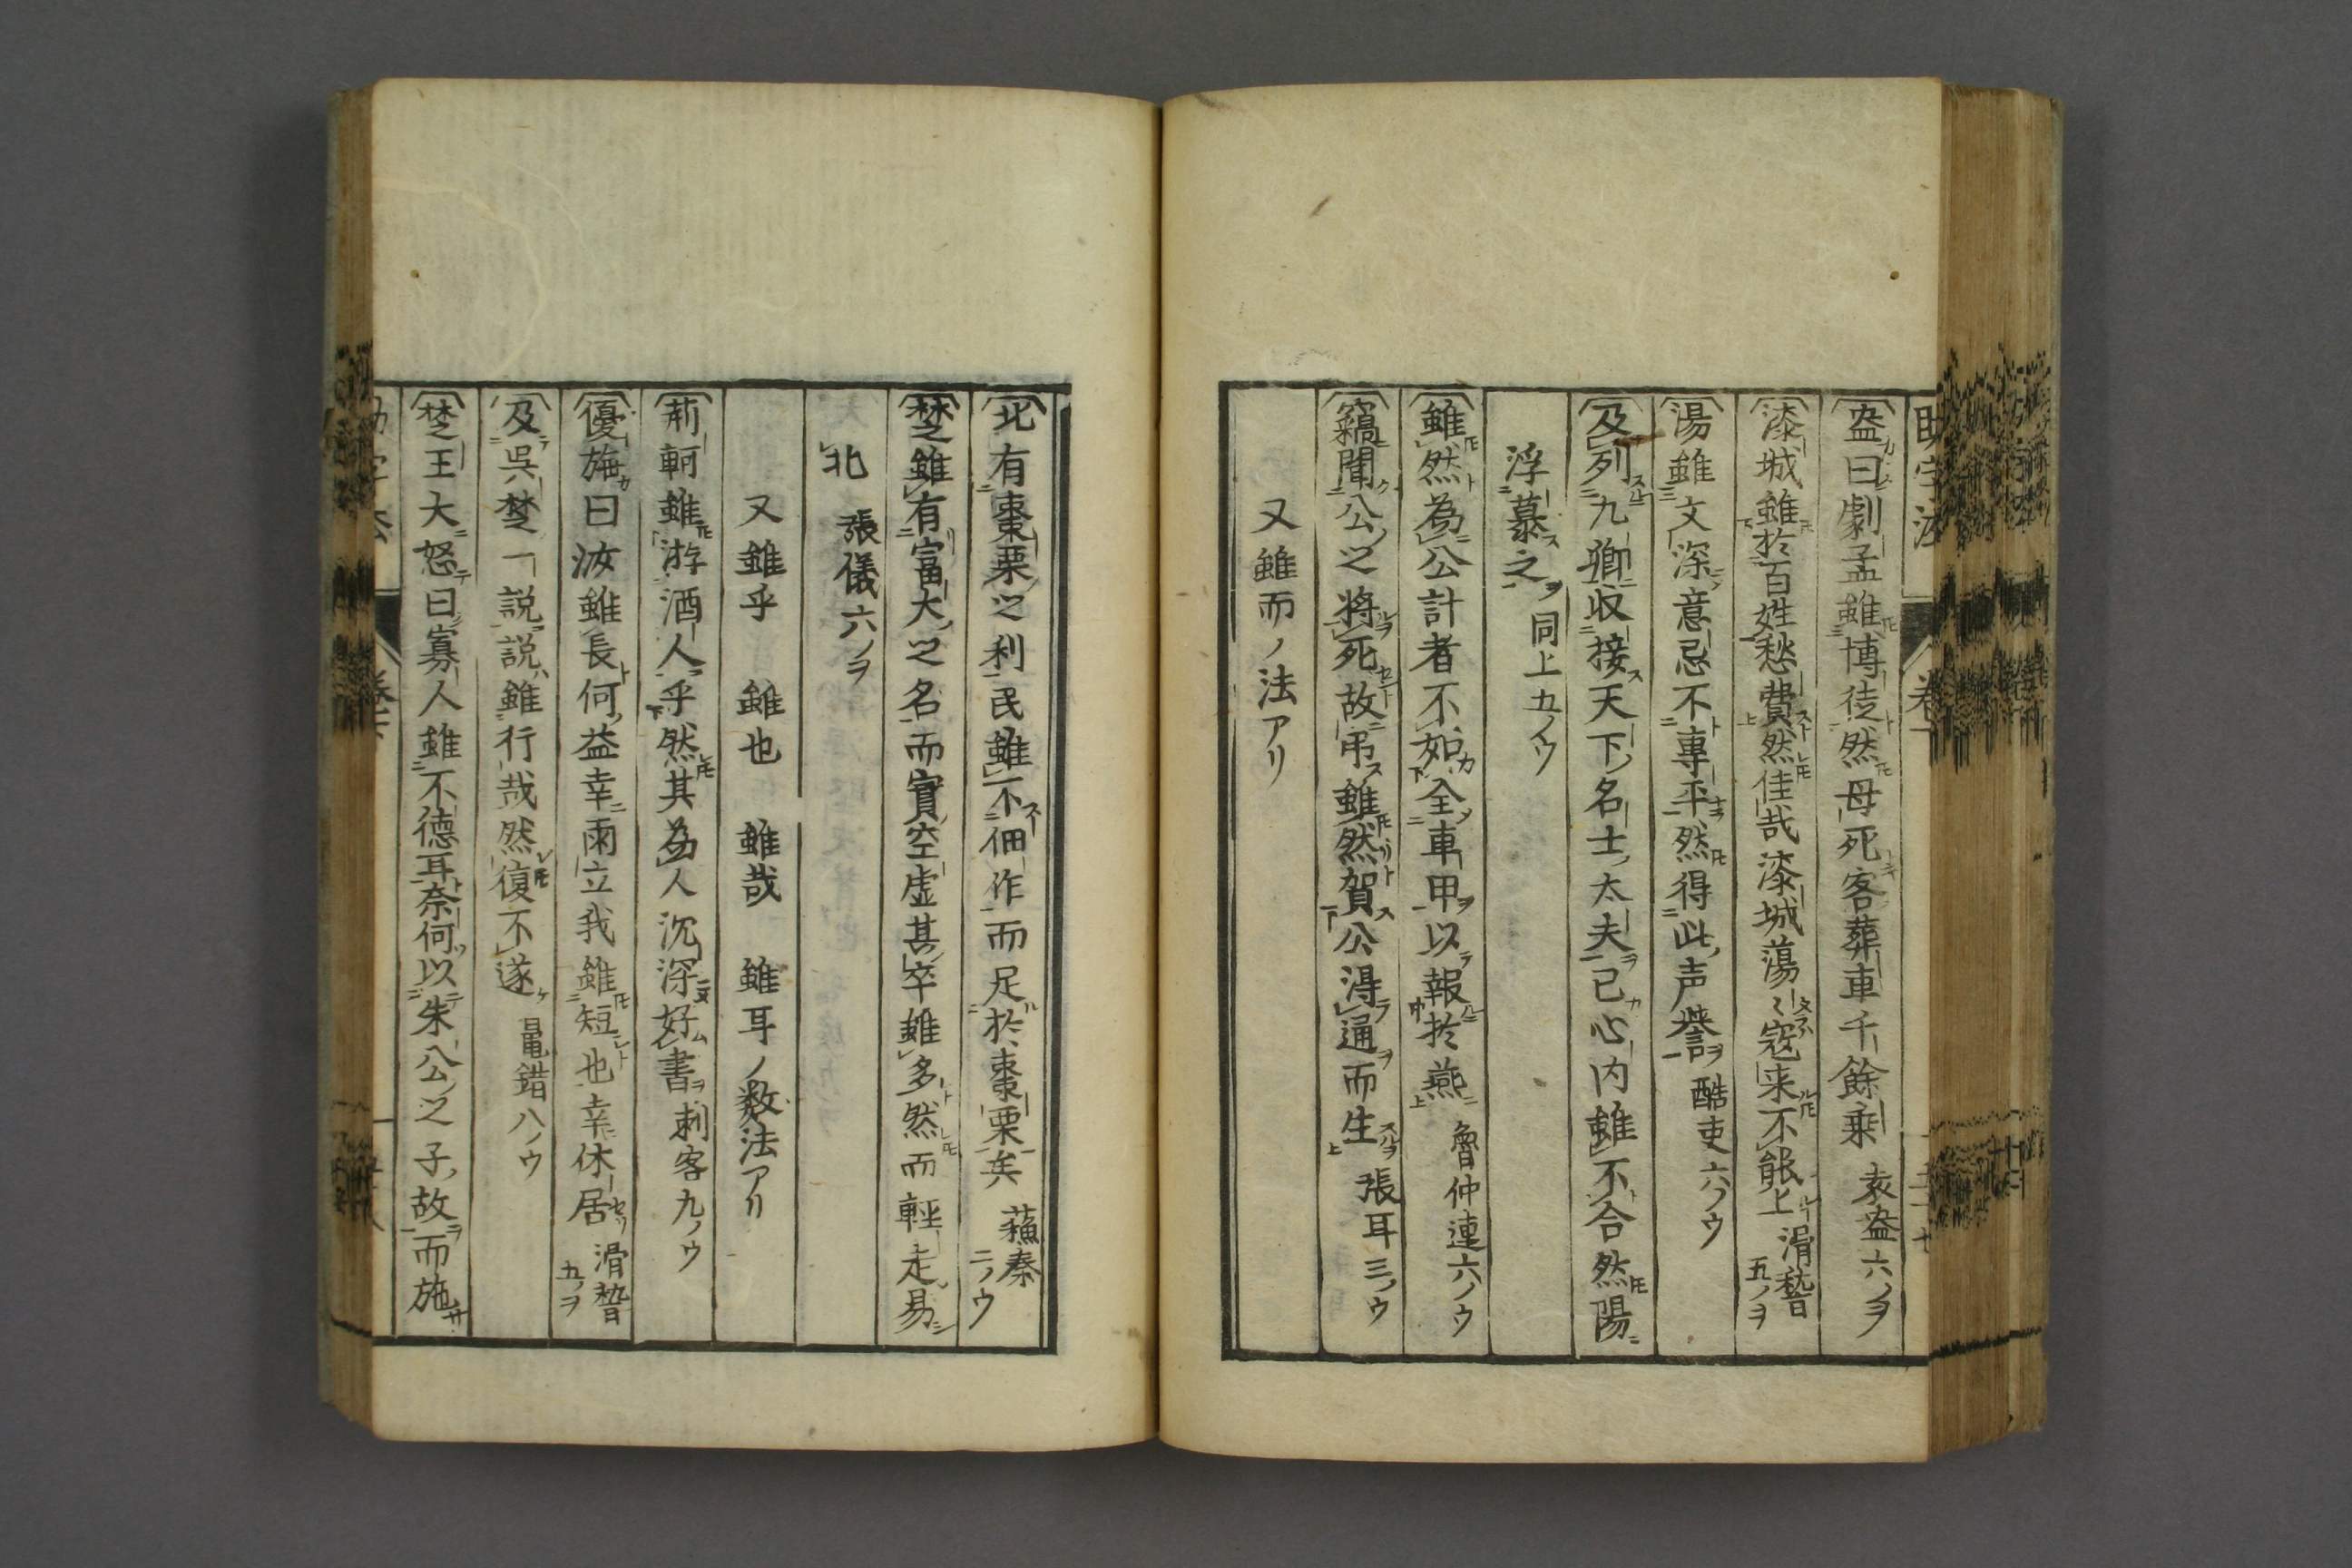 盎曰劇孟雖博徒然母死客葬車千餘乗 袁盎六ノヲ
漆城雖於百姓愁費然佳哉漆城蕩〻寇来不能上 滑稽五ノヲ
湯雖文深意忌不專平然得此声誉 酷吏六ノウ
及列九卿収接天下名士太夫己心内雖不合然陽
浮慕之 同上五ノウ
雖然為公計者不如全車甲以報於燕 魯仲連六ノウ
竊聞公之将死故吊雖然賀公得通而生 張耳三ノウ
又雖而ノ法アリ
北有棗栗之利民雖不佃作而足於棗栗矣 蘓秦二ノウ
楚雖有富大之名而實空虚其卒雖多然而輕走易
北 張儀六ノヲ
又雖乎 雖也 雖哉 雖耳ノ数法アリ
荊軻雖游酒人乎然其為人沉深好書 刺客九ノウ
優旃曰汝雖長何益幸雨立我雖短也幸休居 滑稽五ノヲ
及呉楚一説説雖行哉然復不遂 鼂錯八ノウ
楚王大怒曰寡人雖不徳耳奈何以朱公之子故而施